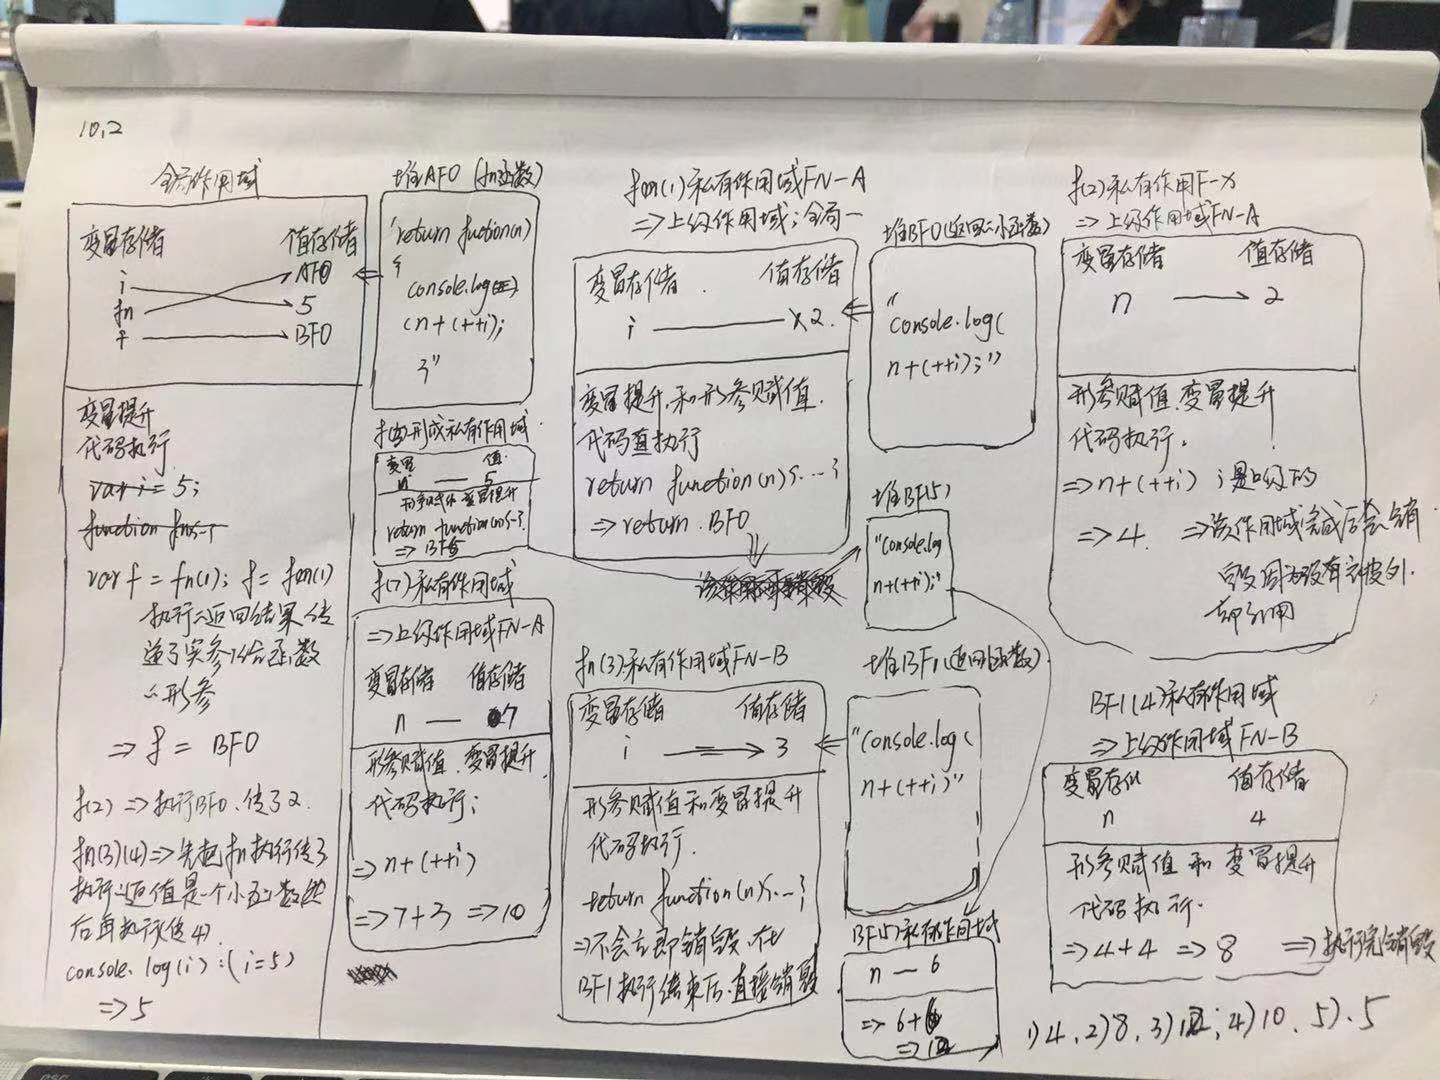 10,2
全局作用域
变量存储 值存储
i AF0
fn 5
f BF0
变量提升
代码执行
var i = 5;
function fn
var f = fn(1); f = fn(1)
执行,返回结果,传
递了实参1给函数
形参
=> f = BF0
f(2) => 执行BF0,传了2.
fn(3)(4) => 先把fn执行传了3
执行,返值是一个小函数,然
后再执行(传4)
console.log(i): (i=5)
=> 5
堆AF0 (fn函数)
"return fuction(n)
{
console.log
(n+(++i);
}"
形成私有作用域
变量 值
n 5
形参赋值 变量提升
return function(n){…}
=> BF5
f(7)私有作用域
=>上级作用域FN-A
变量存储 值存储
n 7
形参赋值、变量提升
代码执行:
=> n+(++i)
=> 7+3 => 10
fn(1)私有作用域FN-A
=>上级作用域:全局
变量存储 值存储
i 2.
变量提升和形参赋值.
代码执行
return function(n){…}
=> return BF0
堆BF0(返回小函数)
"console.log(
n+(++i);")
堆BF(5)
"console.log
n+(++i);"
fn(3)私有作用域FN-B
变量存储 值存储
i 3
形参赋值和变量提升
代码执行.
return function(n){…}
=>不会立即销毁.在
BF1执行结束后,直接销毁
堆BF1(返回小函数)
"console.log(
n+(++i)"
BF(5)私有作用域
n — 6
=> 6+6
=> 12
f(2)私有作用F-X
=>上级作用域FN-A
变量存储 值存储
n 2
形参赋值、变量提升
代码执行.
=> n+(++i) i是上级的
=> 4. =>该作用域完成后会销
毁因为没有被外
部引用
BF1(4)私有作用域
=>上级作用域FN-B
变量存储 值存储
n 4
形参赋值 和 变量提升
代码执行.
=> 4+4 => 8 =>执行完销毁
1)4、2)8、3)12; 4)10、5)、5